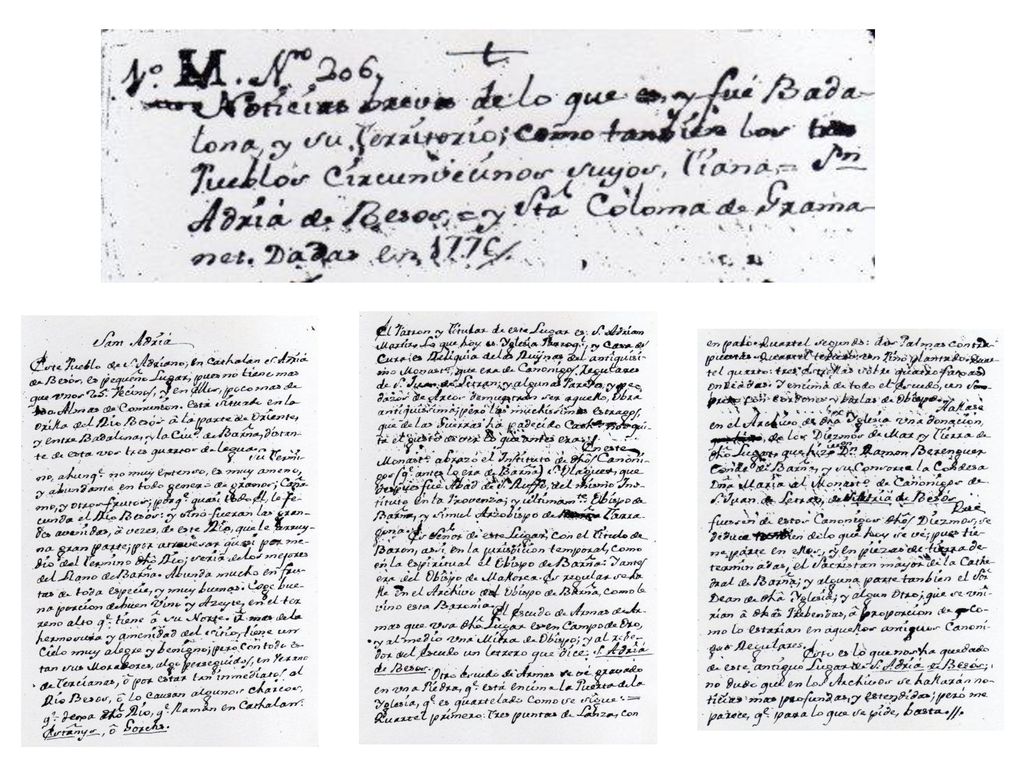 †
1º M. Nro 206,
Noticias breves de lo que es, y fué Bada-
lona, y su Territorio; como tambien los tres
Pueblos Circunvecinos suyos, Tiana = Sn
Adriá de Besos, = y Sta Coloma de Grama-
net. Dadas en 1776/.
Sant Adriá
Este Pueblo de S. Adriano, en Cathalan St Adriá
de Besós, es pequeño Lugar, pues no tiene mas
que unos 25. Vecinos, y en ellos, poco mas de
Almas de Comunion. Está situado en la
Orilla del Rio Besós â la parte de Oriente,
y entre Badalona, y la Ciud. de Barña, distan-
te de esta vos tres quartos de legua. Su Termi-
no, aunq. no muy extenso, es muy ameno,
y abundante en todo genero de granos, Caña-
mo, y otros frutos; porq. quasi todo el, le fe-
cunda el Rio Besós: y sinó fueran las gran-
des avenidas, â vezes, de este Rio, que le arruy-
na gran parte, por atravesar quasi por me-
dio del Termino dho Rio, seria de los mejores
del Llano de Barña. Abunda mucho en fru-
tas de toda especie, y muy buenas. Coge bue-
na porcion de buen Vino y Azeyte, en el ter-
reno alto q. tiene â su Norte. A mas de la
hermosura y amenidad del sitio, tiene un
Cielo muy alegre y benigno; pero con todo es-
tan sus Moradores, algo perseguidos, en Verano
de Tercianas, ô por estar tan inmediatos al
Rio Besós, ô lo causan algunos charcos,
q. dexa dho Rio, q. llaman en Cathalan
Estanys, ô Gorchs.
El Patron y Titular de este Lugar es S. Adrian
Martir. Lo que hoy es Yglesia Parroql. y Casa de
Cura; es Reliquia de las Ruynas del antiquisi-
mo Monasto. que era de Canonigos Reglares
de S. Juan de Setran; y algunas Paredes, y pe-
dazos de Arcos demuestran ser aquello, Obra
antiquissima; pero los muchissimos estragos,
que de las Guerras ha padecido Cathaluña qui-
ta el gusto de ver lo que antes era. En este
Monasto. abrazó el Instituto de dhos Canoni-
gos (q. antes lo era de Barña) S. Olaguer, que
despues fue Abad de S. Ruffo, del mismo Ins-
tituto en la Provenza; y ultimamte. Obispo de
Barña, y simul Arzobispo de Tarra-
gona.
Es Señor de este Lugar, con el Titulo de
Baron, assi en la jurisdicion temporal, como
en la espiritual el Obispo de Barña: Y antes
era del Obispo de Mallorca. Es regular se ha-
lle en el Archivo del Obispo de Barña, como le
vino esta Baronia.
El Escudo de Armas de Ar-
mas que usa dho Lugar es en Campo de Oro,
y al medio una Mitra de Obispo; y al rede-
dor del Escudo un letrero que dice: S. Adriá
de Besos.
Otro Escudo de Armas se vé gravado
en una Piedra, q. está encima la Puerta de la
Yglesia, q. es quartelado como se sigue:
Quartel primero: Tres puntas de Lanza, con
en palo: Quartel segundo: dos Palmas contra-
puestas: Quartel tercero: un Pino plantado: Quar-
tel quarto: tres estrellas sobre quatro faxas
ondeadas: Y encima de todo el Escudo, un
con cordones y borlas de Obispo.
Hallase
en el Archivo de dha Yglesia una donacion,
de los Diezmos de Mar y Tierra de
dho Lugar que hizo Dn. Ramon Berenguer
Conde de Barña, y su Consorte la Condesa
Dña Maria al Monasto. de Canonigos de
S. Juan de Setran, de S. Adriá de Besós.
Que
fuesen de estos Canonigos dhos Diezmos, se
deduce tambien de lo que hoy se vé; pues tie-
ne parte en ellos, y en piezas de tierra de-
terminadas, el Sacristan mayor de la Cathe-
dral de Barña; y alguna parte tambien el Sr.
Dean de dha Yglesia, y algun Otro; que se uni-
rian â dhas Prebendas, â proporcion de co-
mo lo estarian en aquellos antiguos Canoni-
gos Reglares.
Esto es lo que nos ha quedado
de este antiguo Lugar de S. Adriá de Besós;
no dudo que en los Archivos se hallarán no-
ticias mas profundas, y estendidas; pero me
parece, q. para lo que se pide, basta.//.